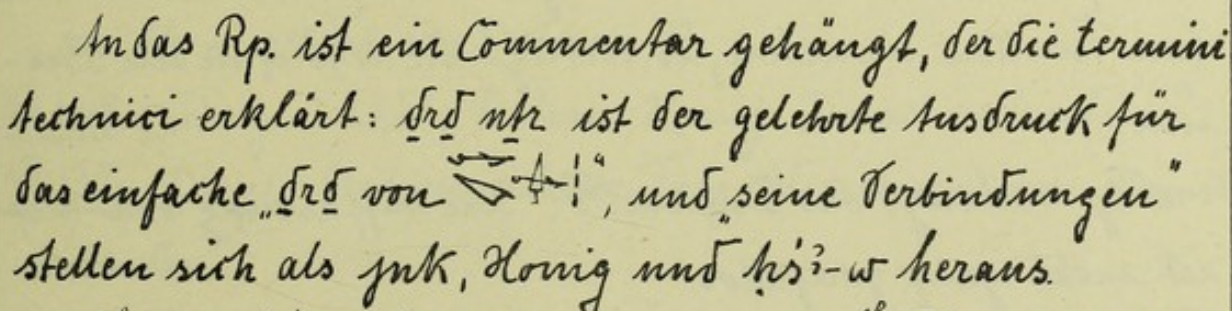 An das Rp. ist ein Commentar gehängt, der die termini
technici erklärt: ḏrḏ nṯr ist der gelehrte Ausdruck für
das einfache „ḏrḏ von “, und „seine Verbindungen“
stellen sich als jnk, Honig und ḥśꜣ-w heraus.